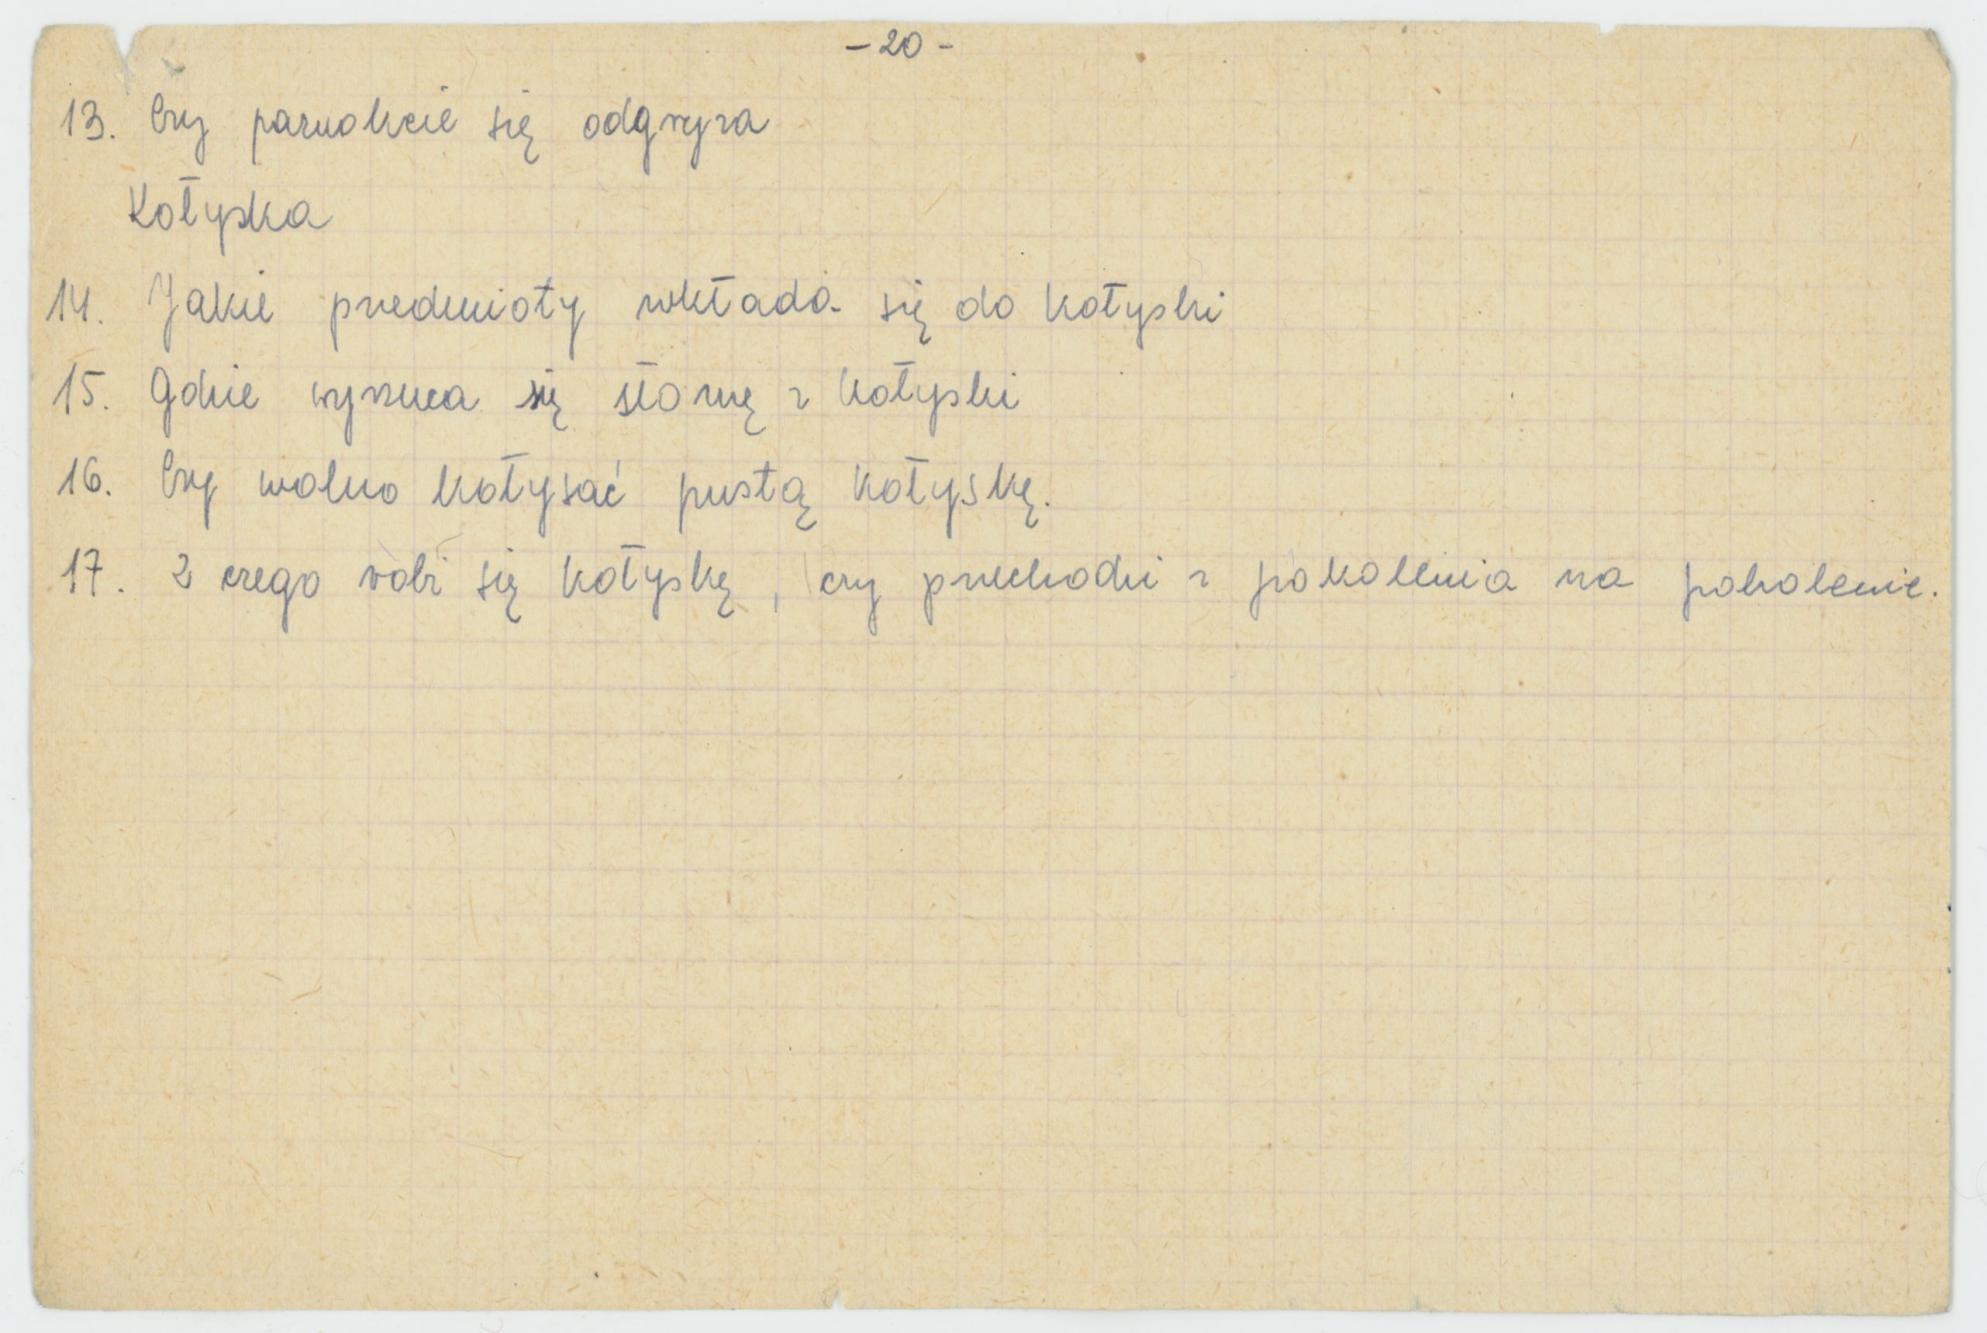 - 20 -
13. Czy paznokcie się odgryza
Kołyska
14. Jakie przedmioty wkłada się do kołyski
15. Gdzie wyrzuca się słomę z kołyski
16. Czy wolno kołysać pustą kołyskę.
17. Z czego robi się kołyskę, czy przechodzi z pokolenia na pokolenie.